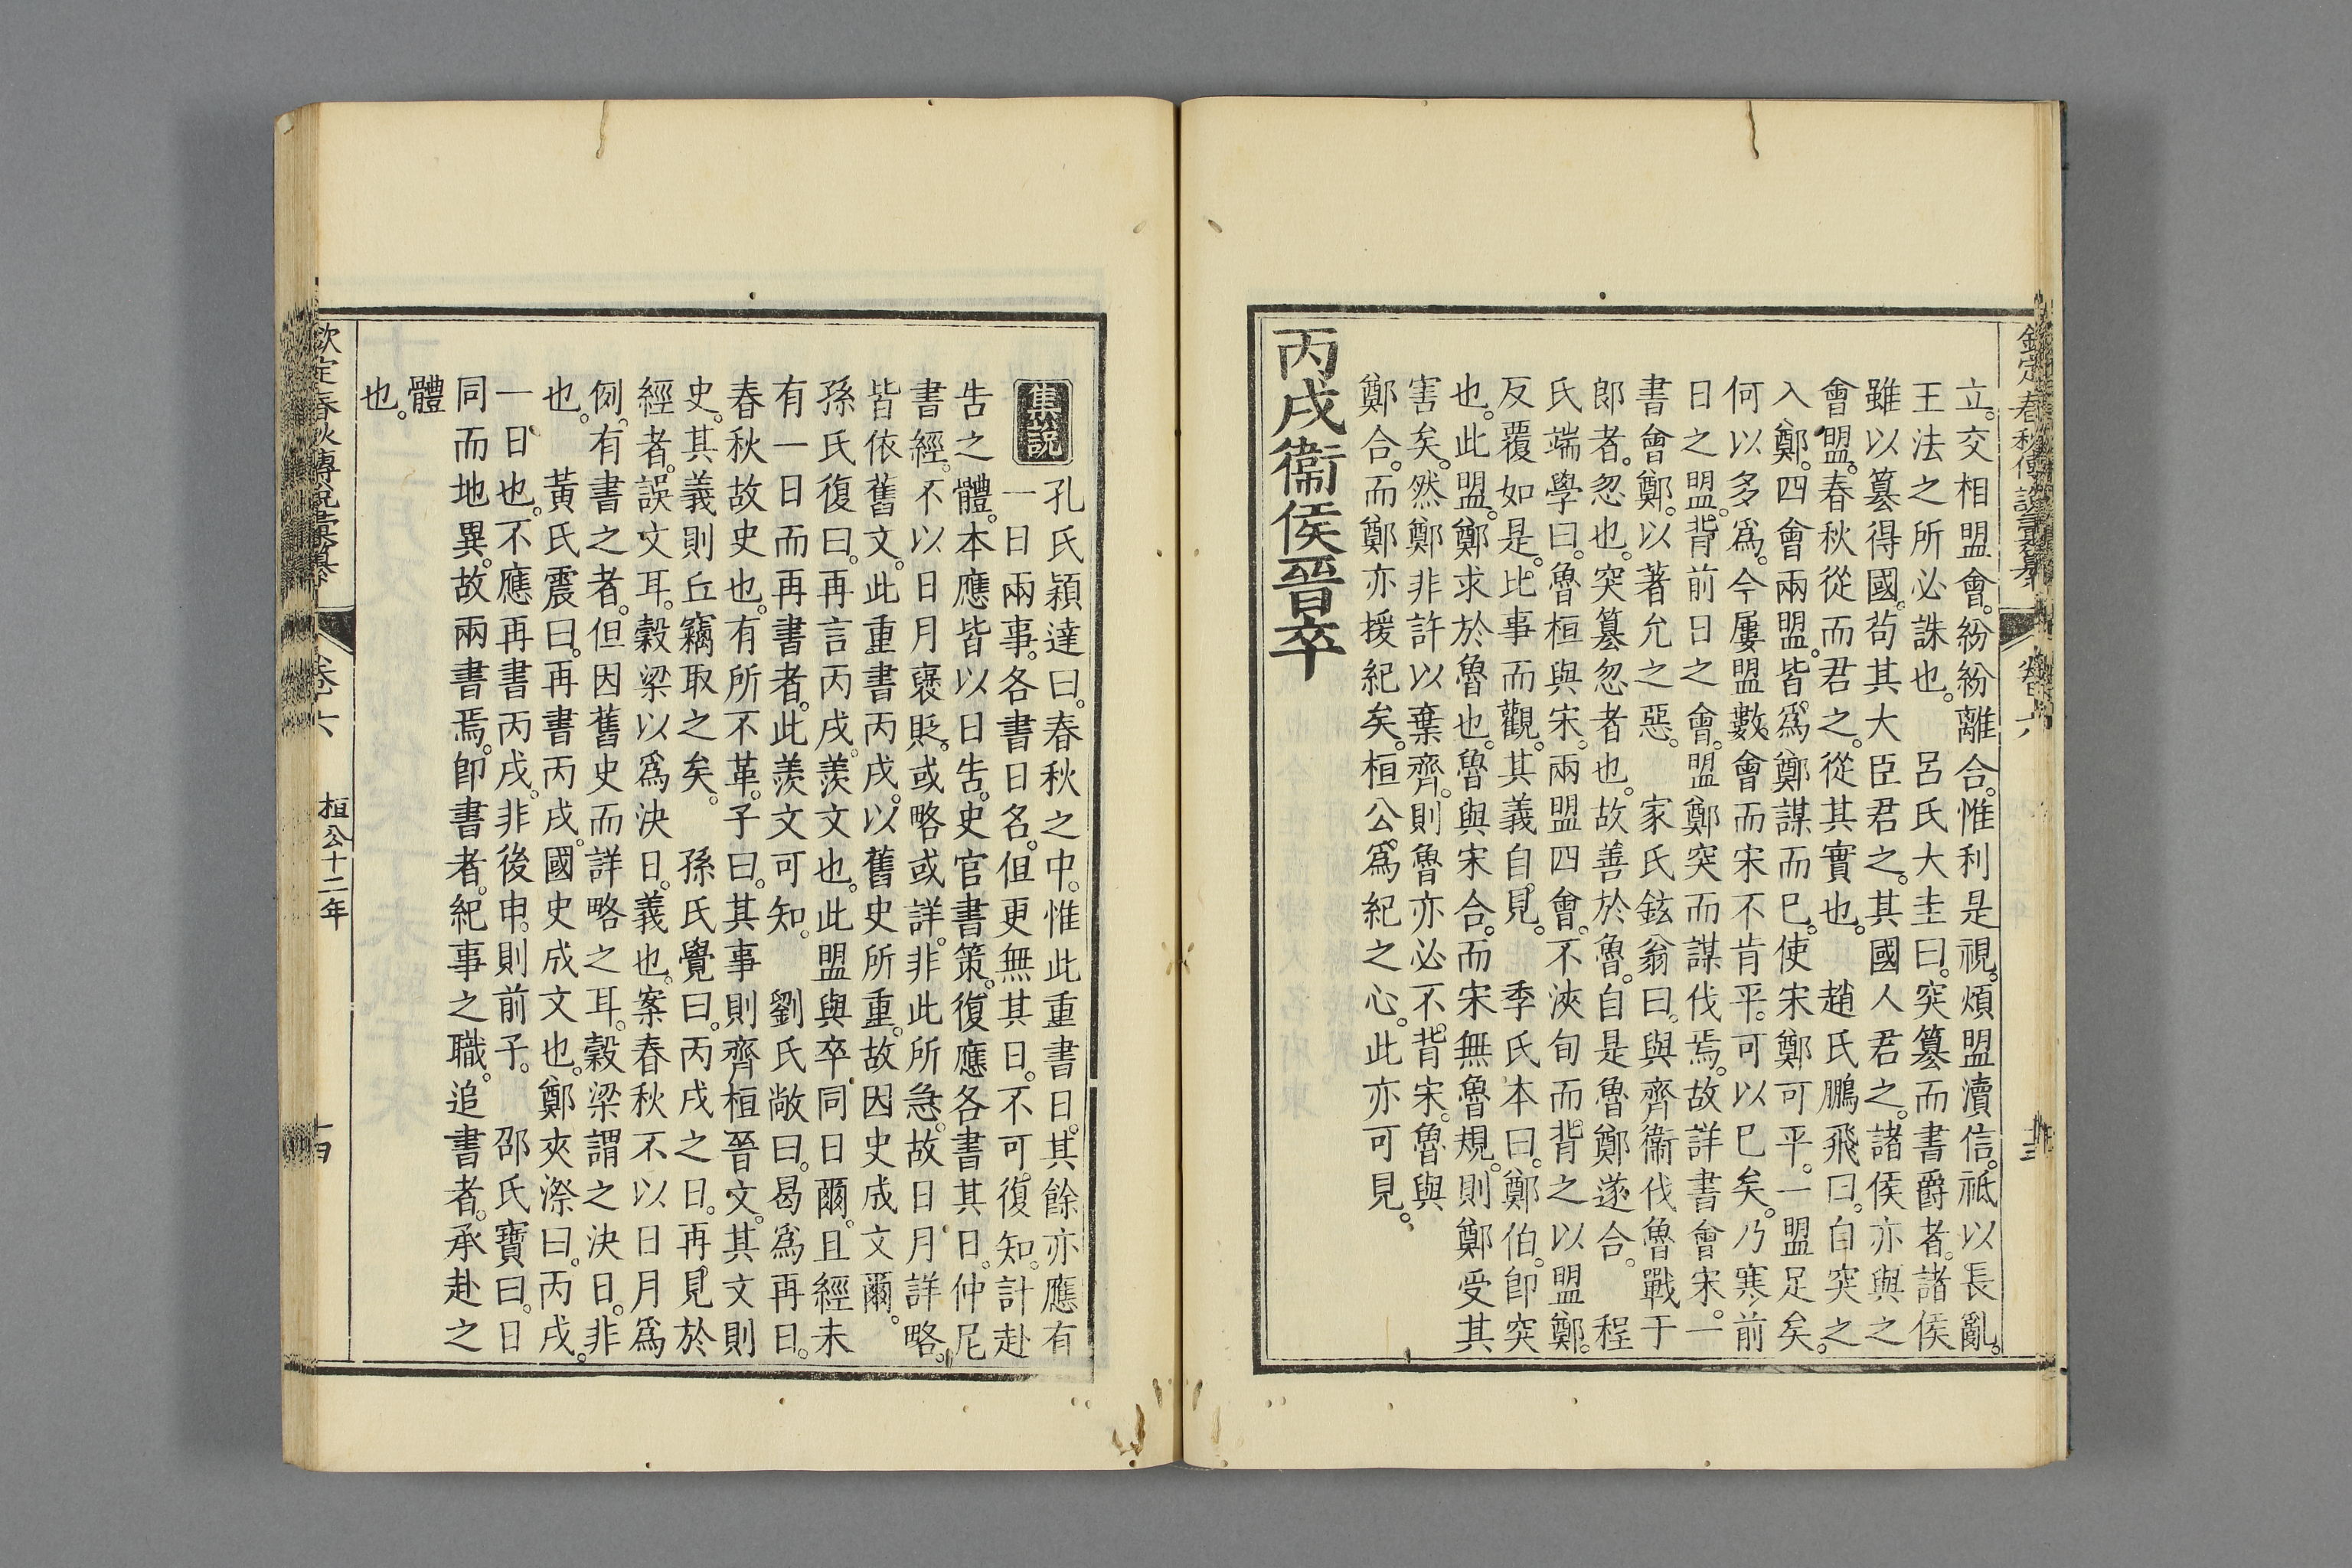 欽定春秋傳說彙纂 卷六
立。交相盟會。紛紛離合。惟利是視。煩盟瀆信。祇以長亂。
王法之所必誅也。 呂氏大圭曰。突簒而書爵者。諸侯
雖以簒得國。苟其大臣君之。其國人君之。諸侯亦與之
會盟。春秋從而君之。從其實也。 趙氏鵬飛曰。自突之
入鄭。四會兩盟。皆爲鄭謀而巳。使宋鄭可平。一盟足矣。
何以多爲。今屢盟數會而宋不肯平。可以巳矣。乃寒前
日之盟。背前日之會。盟鄭突而謀伐焉。故詳書會宋。一
書會鄭。以著允之惡。 家氏鉉翁曰。與齊衞伐魯戰于
郎者。忽也。突簒忽者也。故善於魯。自是魯鄭遂合。 程
氏端學曰。魯桓與宋。兩盟四會。不浹旬而背之以盟鄭。
反覆如是。比事而觀。其義自見。 季氏本曰。鄭伯。卽突
也。此盟。鄭求於魯也。魯與宋合。而宋無魯規。則鄭受其
害矣。然鄭非許以棄齊。則魯亦必不背宋。魯與
鄭合。而鄭亦援紀矣。桓公爲紀之心。此亦可見。
丙戌衞侯晉卒
集說 孔氏穎達曰。春秋之中。惟此重書日。其餘亦應有
一日兩事。各書日名。但更無其日。不可復知。計赴
告之體。本應皆以日告。史官書策。復應各書其日。仲尼
書經。不以日月襃貶。或略或詳。非此所急。故日月詳略。
皆依舊文。此重書丙戌。以舊史所重。故因史成文爾。
孫氏復曰。再言丙戌。羨文也。此盟與卒同日爾。且經未
有一日而再書者。此羨文可知。 劉氏敞曰。曷爲再日。
春秋故史也。有所不革。子曰。其事則齊桓晉文。其文則
史。其義則丘竊取之矣。 孫氏覺曰。丙戌之日。再見於
經者。誤文耳。穀梁以爲決日。義也。案春秋不以日月爲
例。有書之者。但因舊史而詳略之耳。穀梁謂之決日。非
也。 黃氏震曰。再書丙戌。國史成文也。鄭夾漈曰。丙戌。
一日也。不應再書丙戌。非後申。則前子。 邵氏寶曰。日
同而地異。故兩書焉。卽書者。紀事之職。追書者。承赴之
體
也。
欽定春秋傳說彙纂 卷六 桓公十二年